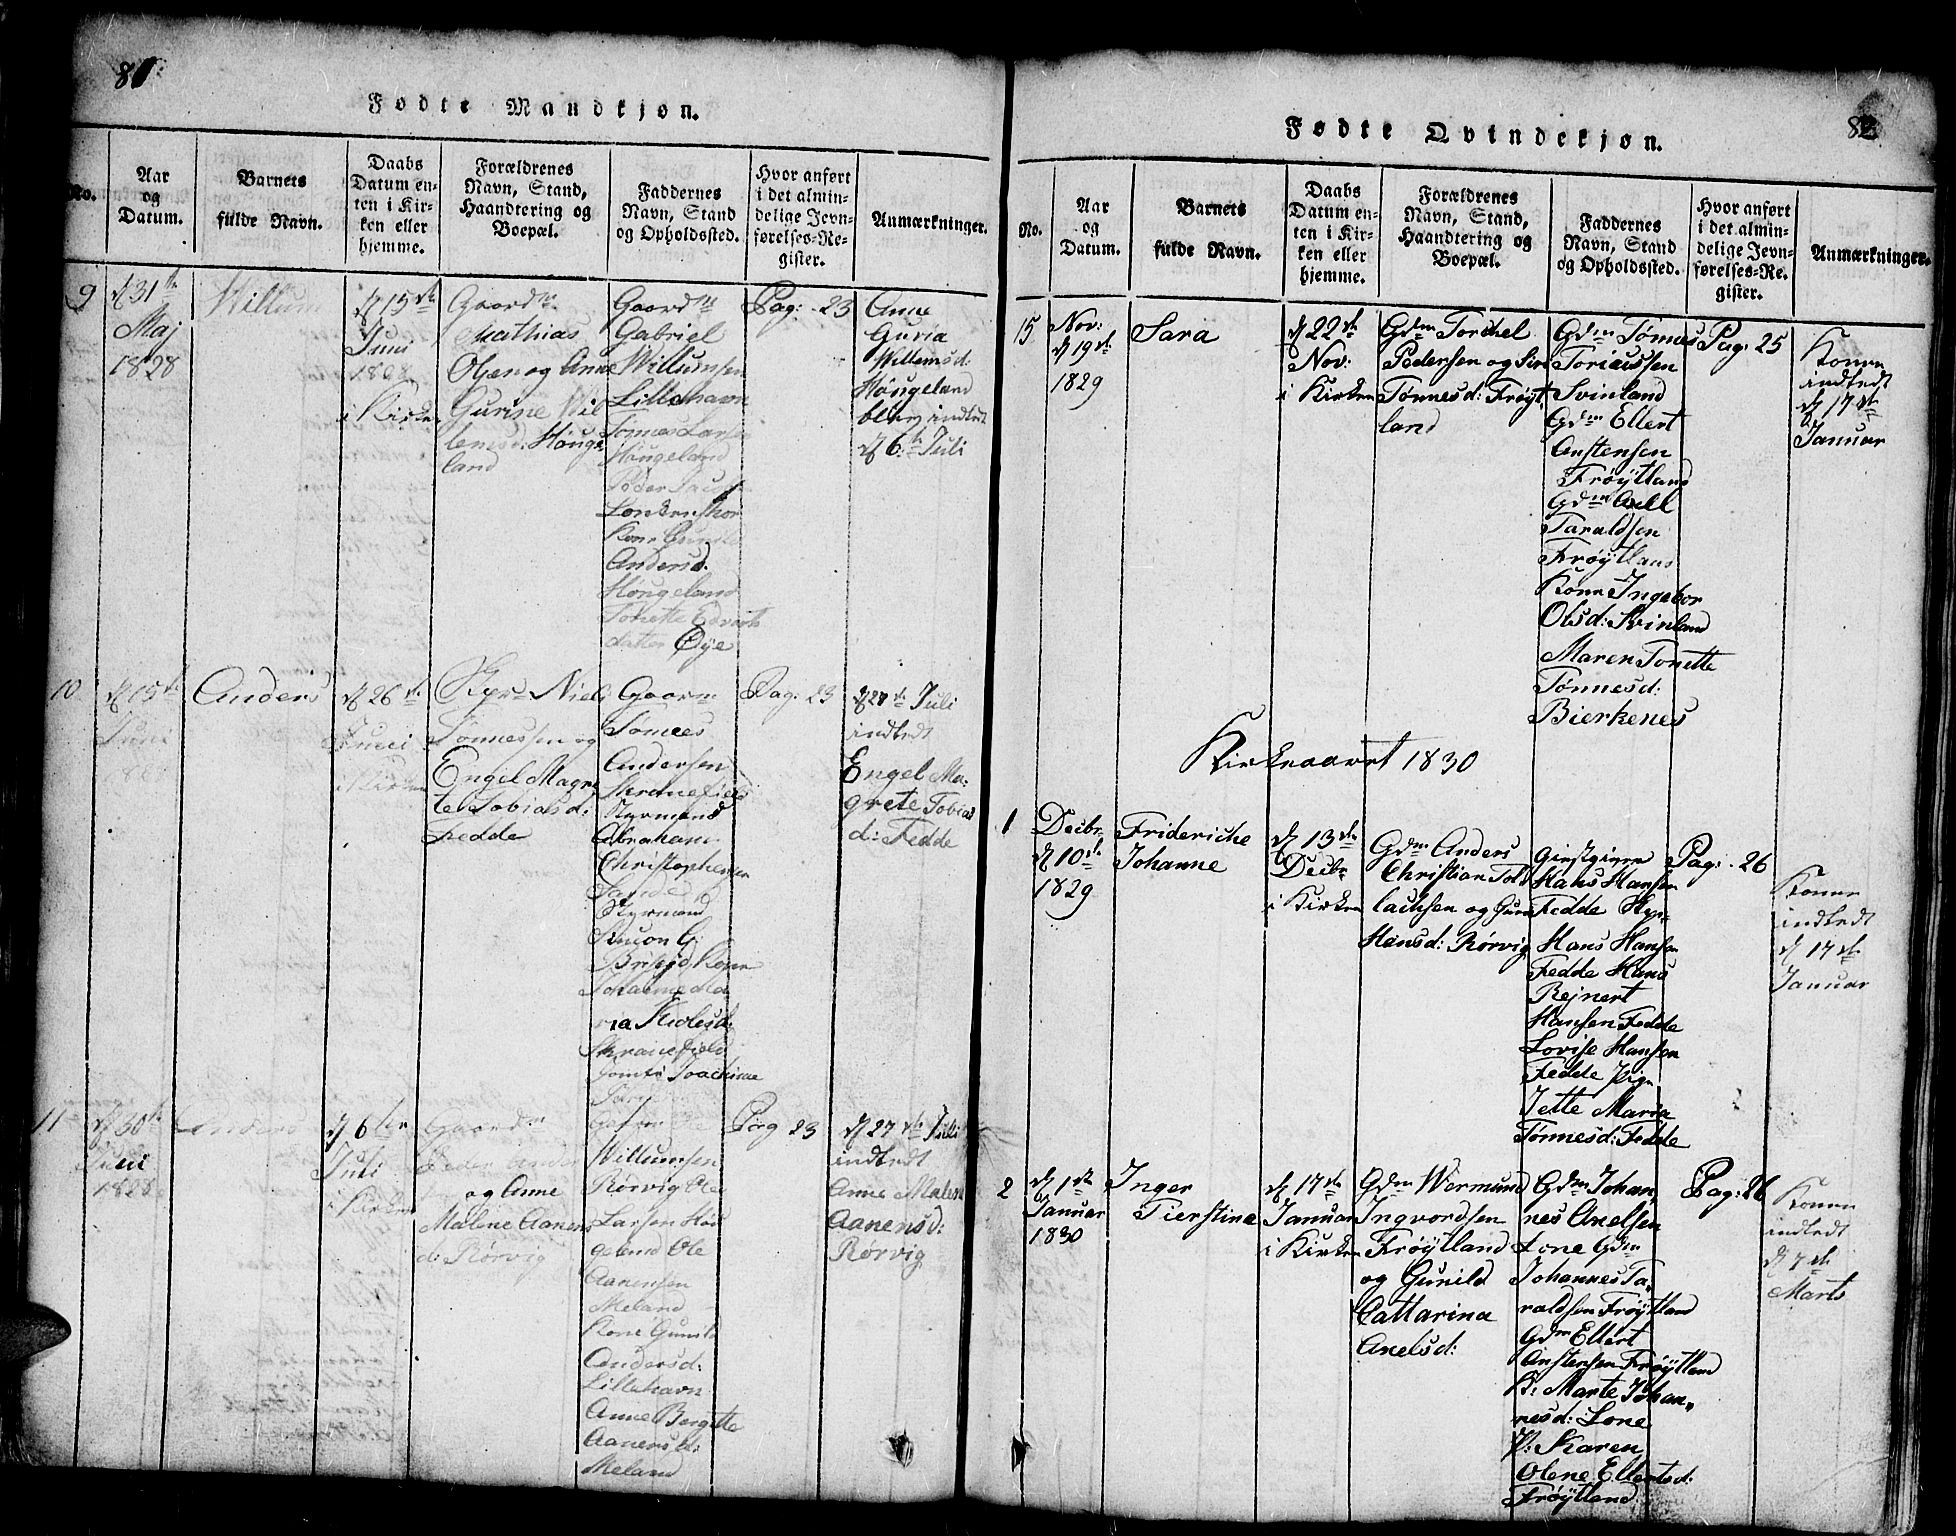 81.
Fødte Mandkjøn.
No.
Aar
og
Datum.
Barnets
fulde Navn.
Daabs
Datum en-
ten i Kir-
ken eller
hjemme.
Forældrenes
Navn, Stand,
Haandtering og
Boepæl.
Faddernes
Navn, Stand
og Opholdssted.
Hvor anført
i det almin-
delige Jevn-
førelses-Re-
gister.
Anmærkninger.
9
d 31te
Maj
1828
Willum
d 15de
Juni
1828
i Kirken
Gaardm
Mathias
Olsen og Anne
Gurine Wil
lemsd: Houge
land
Gaardm
Gabriel
Willumsen
Lillehavn
Tønnes Larsen
Hougeland
Peder
Kone
Andersd.
Hougeland
Tonette
datter Øye
Pag: 23
Anne
Guria
Willemsd:
Hougeland
blev indledt
d 6te Juli
10
d 15de
Juni
Anders
d 26de
Juni
i Kirken
Niels
Tønnessen og
Engel Magre
te Tobiasd:
Fedde
Gaardm
Tønnes
Andersen
Skranefield
Styrmand
Abraham
Christophersen
Styrmand
Simon G:
Johanne Ma
ria Nielsd:
Skranefield
Jomfr Joachime
Pag: 23
d 27de Juli
indledt
Engel Ma-
grete Tobias
d: Fedde
11
d 30te
Juni
1828
Anders
d 6te
Juli
i Kirken
Gaardm
Peder Anders
og Anne
Malene Aanens
d: Rørvig
Gaardm Ole
Willumsen
Rørvig Ole
Larsen Hou
geland Ole
Aanensen
Meland
Kone Gunild
Andersd:
Lillehavn
Anne Bergitte
Aanensd:
Meland
Pag 23
d 27de Juli
indledt
Anne Malene
Aanensd:
Rørvig
82
Fødte Qvindekjøn.
No.
Aar
og
Datum.
Barnets
fulde Navn.
Daabs
Datum en-
ten i Kir-
ken eller
hjemme.
Forældrenes
Navn, Stand,
Haandtering og
Boepæl.
Faddernes
Navn, Stand
og Opholdssted.
Hvor anført
i det almin-
delige Jevn-
førelses-Re-
gister.
Anmærkninger.
15
Nov:
d 19de
1829
Sara
d 22de
Nov:
i Kirken
Gdm Torchel
Pedersen og Siri
Tønnesd: Frøyt
land
Gdm Tønnes
Toriussen
Svinland
Gdm Ellert
Anstensen
Frøytland
Gdm Axell
Taraldsen
Frøytland
Kone Ingebor
Olsd: Svinland
Maren Tonette
Tønnesd:
Bierkenes
Pag: 25
Konen
indledt
d 17de
Januar
Kirkeaaret 1830
1
Decbr
d 10de
1829
Frideriche
Johanne
d 13de
Decbr
i Kirken
Gdm Anders
Christian Tol
lachsen og Guri
Hansd: Rørvig
Giestgiver
Hans Hansen
Fedde
Hans Hansen
Fedde Hans
Rejnert
Hansen Fedde
Lovise Hansen
Fedde Pige
Jette Maria
Tønnesd: Fedde
Pag: 26
Konen
indledt
d 17de
Januar
2
d 1ste
Januar
1830
Inger
Tierstine
d 17de
Januar
i Kirken
Gdm Wermund
Ingvordsen
Frøytland
og Gunild
Cattarina
Axelsd:
Gdm Johan
nes Axelsen
Lone Gdm
Johannes Ta-
raldsen Frøytland
Gdm Ellert
Anstensen Frøytland
K: Marte Johan-
nesd: Lone
P: Karen
Olene Ellertsd:
Frøytland
Pag: 26
Konen
indledt
d 7de
Marts